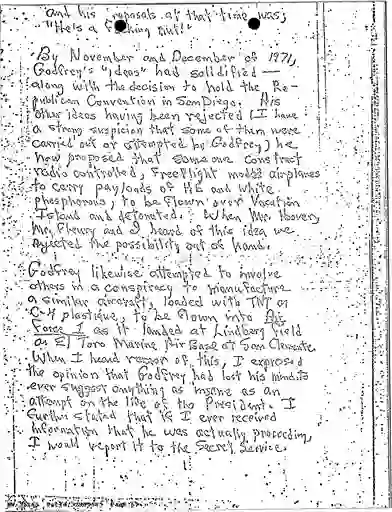 and his proposals at that time was;
"He's a f●cking nut!"
By November and December of 1971,
Godfrey's "ideas" had solidified —
along with the decision to hold the Re-
publican Convention in San Diego. His
other ideas having been rejected (I have
a strong suspicion that some of them were
carried out or attempted by Godfrey), he
now proposed that someone construct
radio controlled, freeflight model airplanes
to carry payloads of HE and white
phosphorous, to be flown over Vacation
Island and detonated. When Mr. Hoover,
Mr. Fleury and I heard of this idea we
rejected the possibility out of hand.
Godfrey likewise attempted to involve
others in a conspiracy to manufacture
a similar aircraft, loaded with TNT or
C-4 plastique, to be flown into Air
Force 1 as it landed at Lindberg Field
or El Toro Marine Air Base at San Clemente.
When I heard of this, I expressed
the opinion that Godfrey had lost his mind to
ever suggest anything as insane as an
attempt on the life of the President. I
further stated that if I ever received
information that he was actually proceeding,
I would report it to the Secret Service.